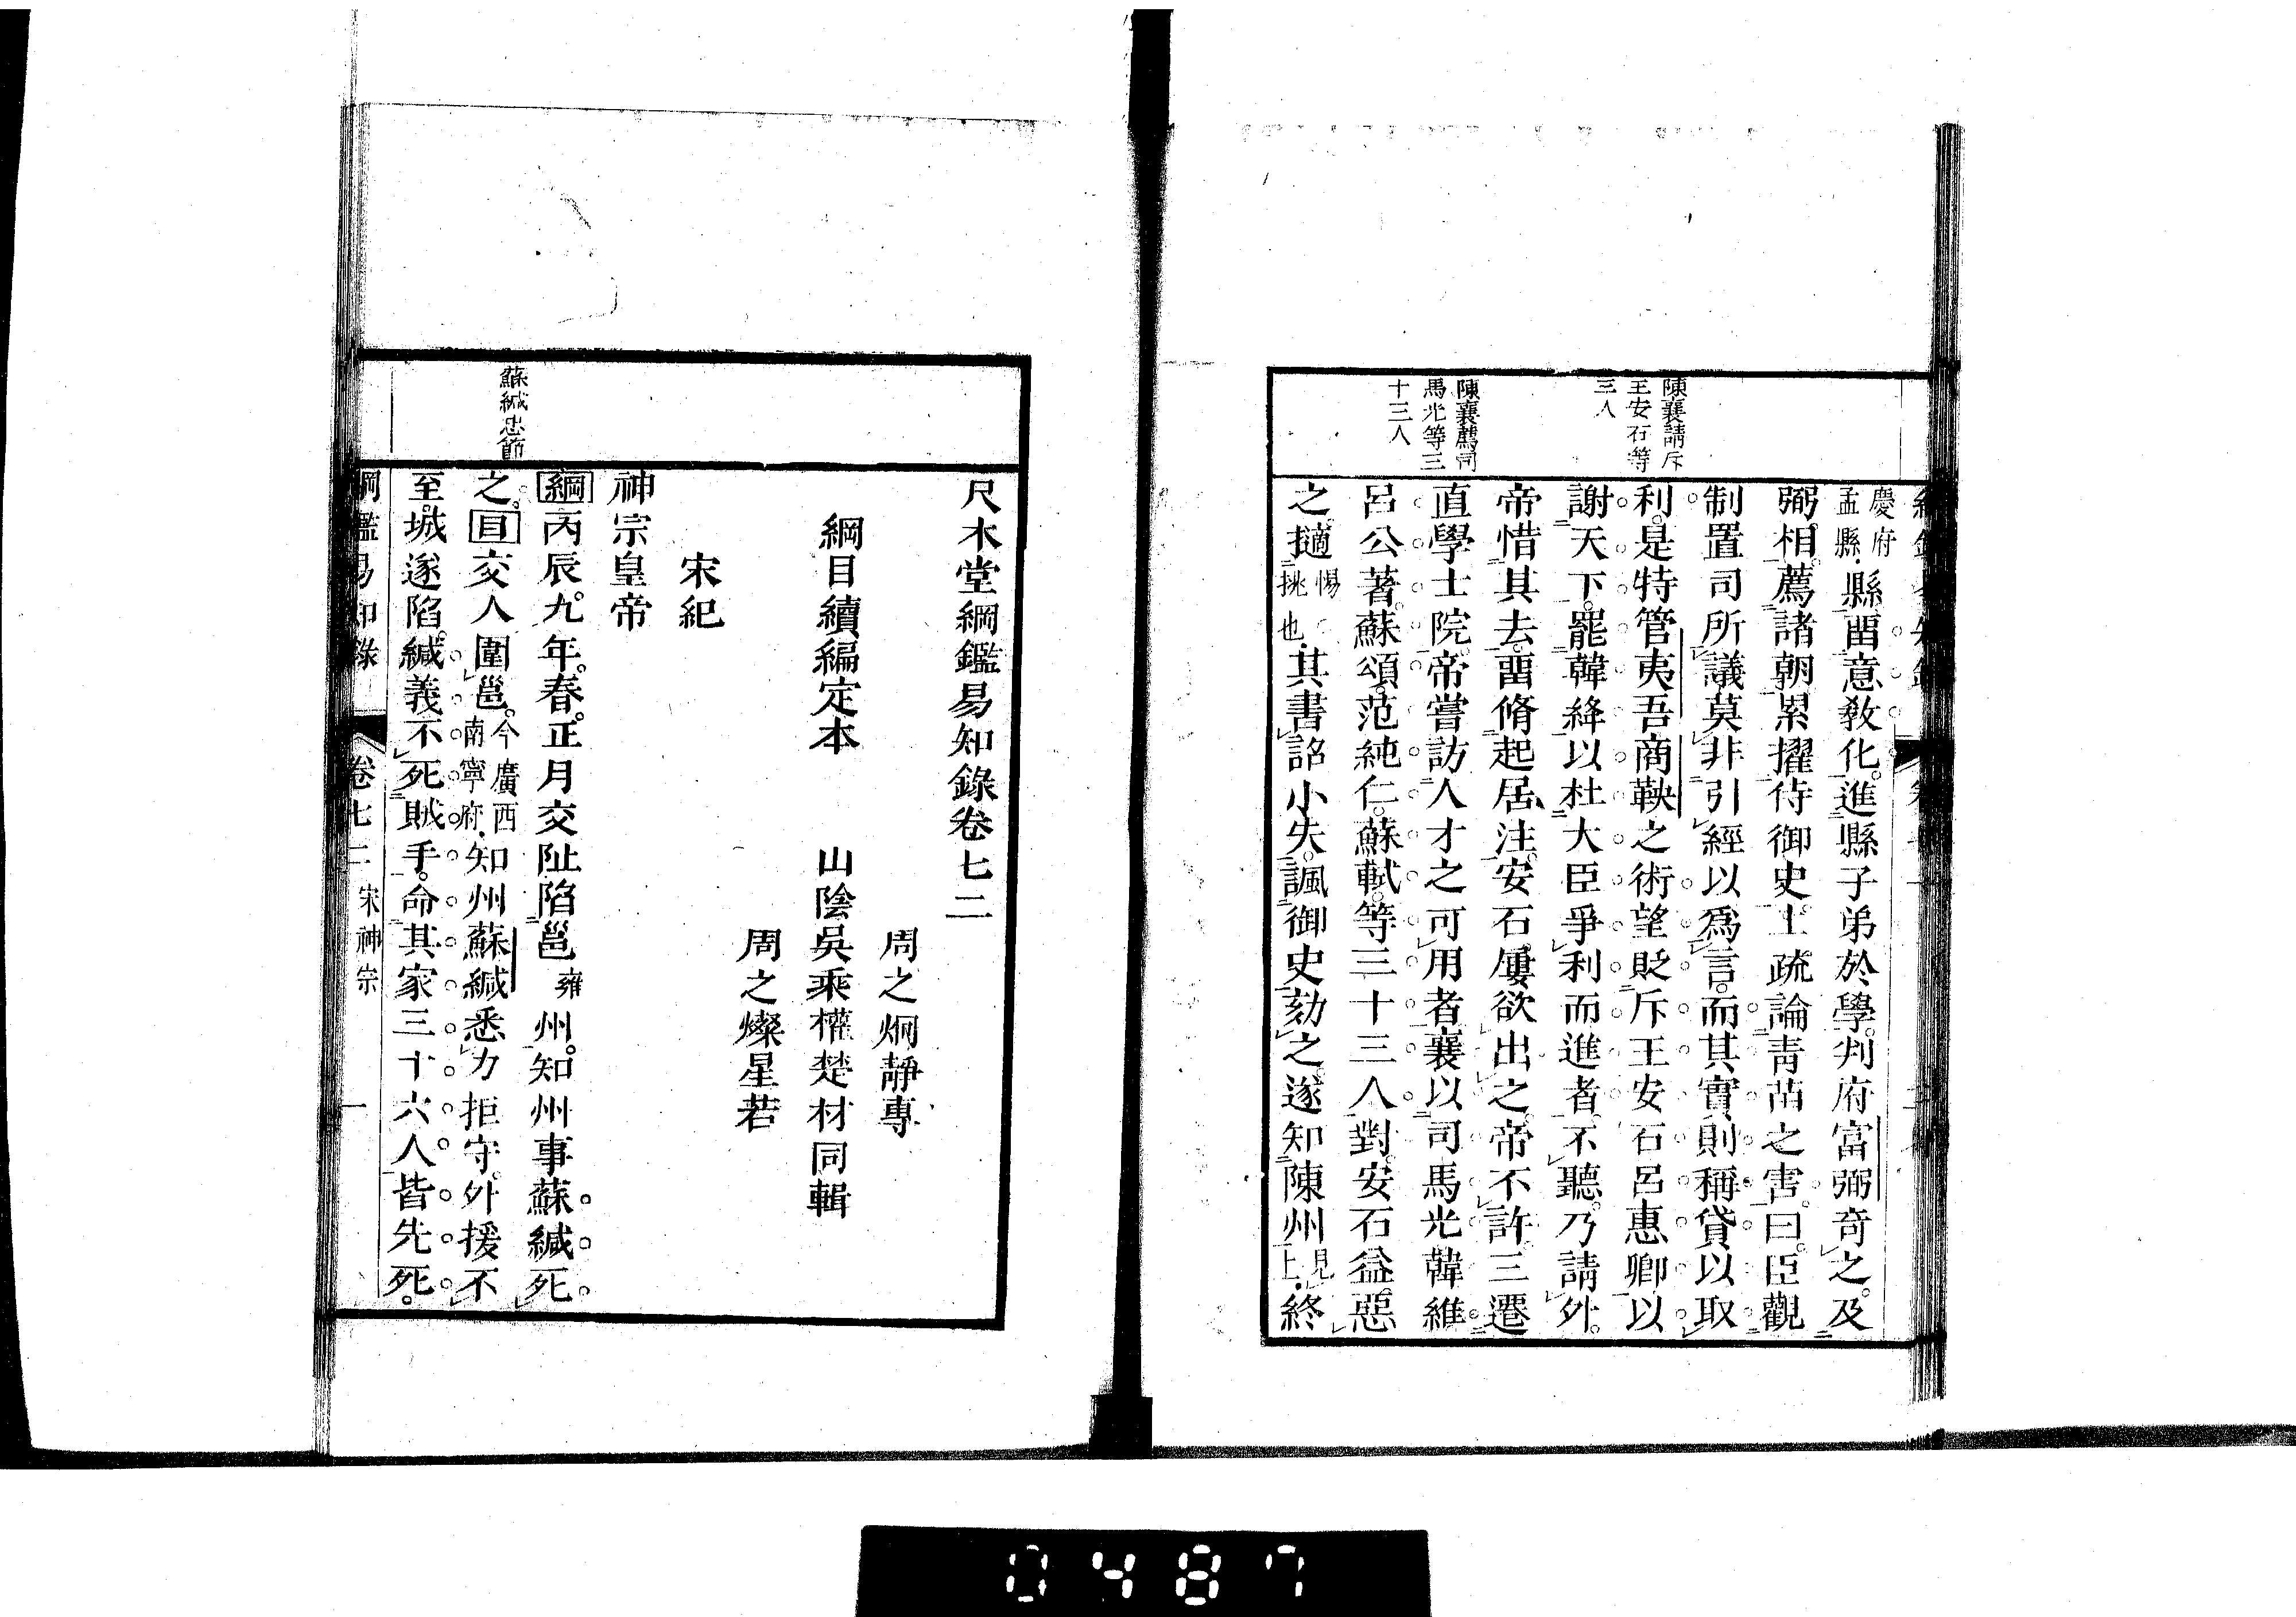 陳襄請斥
王安石等
三人
陳襄薦司
馬光等三
十三人
慶府
孟縣
縣。畱意敎化。進縣子弟於學。判府富弼奇之。及
弼相。薦諸朝。累擢侍御史。上疏論靑苗之害。曰。臣觀
制置司所議。莫非引經以爲言。而其實則稱貸以取
利。是特管夷吾商鞅之術。望貶斥王安石呂惠卿以
謝天下。罷韓絳以杜大臣爭利而進者。不聽。乃請外。
帝惜其去。畱脩起居注。安石屢欲出之。帝不許。三遷
直學士院。帝嘗訪人才之可用者。襄以司馬光韓維
呂公著。蘇頌。范純仁。蘇軾。等三十三人對。安石益惡
之。擿惕挑也.其書詔小失。諷御史劾之。遂知陳州見上.終
尺木堂綱鑑易知錄卷七二
周之炯靜專
綱目續編定本 山陰吳乘權楚材同輯
周之燦星若
宋紀
神宗皇帝
蘇緘忠節
綱丙辰。九年。春。正月交阯陷邕雍州。知州事蘇緘死
之。目交人圍邕。今廣西南寧府.知州蘇緘悉力拒守。外援不
至。城遂陷。緘義不死賊手。命其家三十六人皆先死。
綱鑑易知錄 卷七二 宋神宗 一
0487